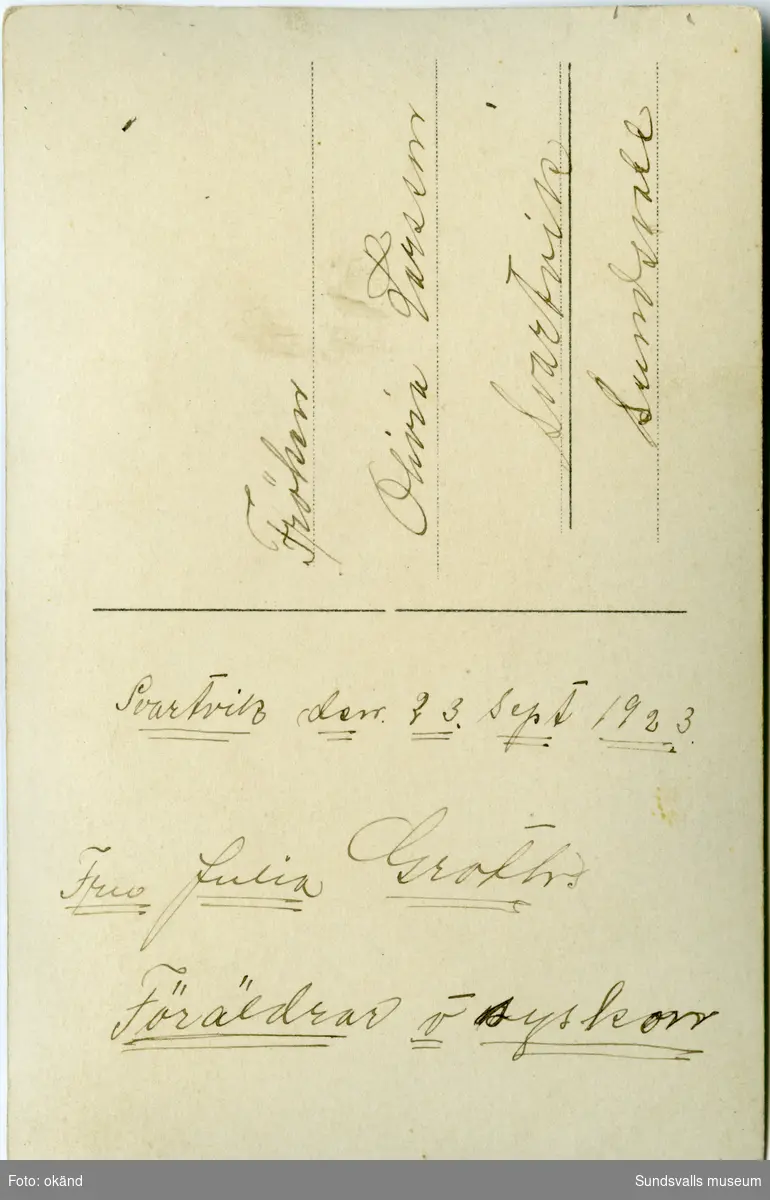 Fröken
Olivia Larsson
Svartvik
Sundsvall
Svartvik den. 23. Sept 1923.
Fru Julia Groths
Föräldrar o syskon
Foto: okänd
Sundsvalls museum